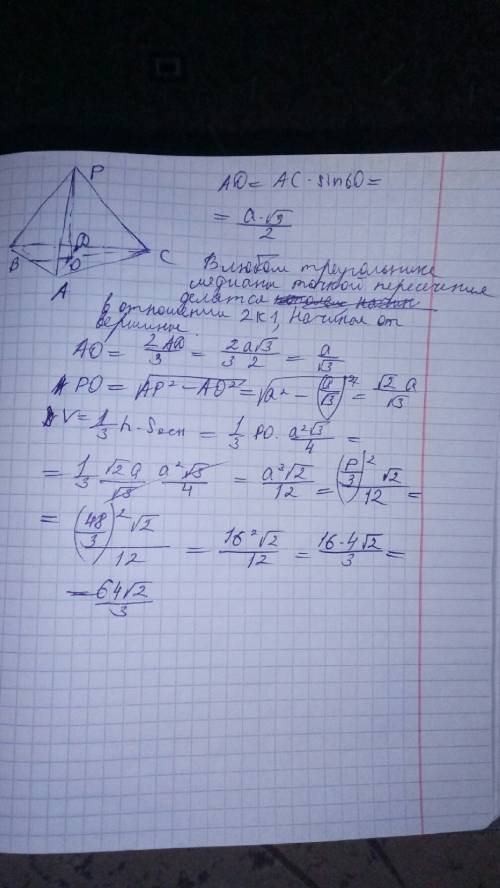 P
D
B
O
C
A
AD = AC · sin60 =
= a·√3/2
В любом треугольнике
медианы точкой пересечения
делятся
в отношении 2 к 1, начиная от
вершины
AO = 2AD/3 = 2/3 a√3/2 = a/√3
PO = √(AP² - AO²) = √(a² - (a/√3)²) = √2 a/√3
V = 1/3 h·Sосн = 1/3 PO · a²√3/4 =
= 1/3 √2 a/√3 a²√3/4 = a³√2/12 = (P/3)²√2/12 =
= (48/3)²√2/12 = 16²√2/12 = 16·4√2/3 =
= 64√2/3